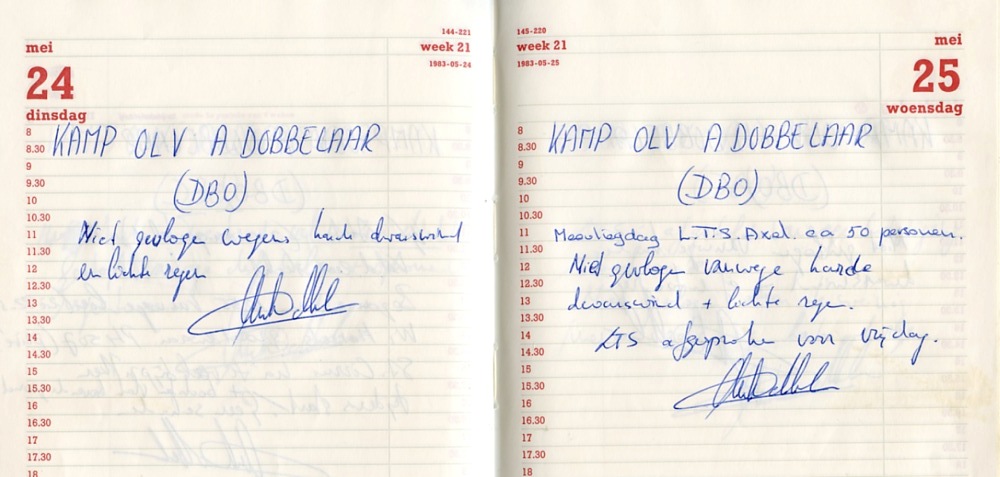 144-221
mei
week 21
1983-05-24
24
dinsdag
8
8.30
9
9.30
10
10.30
11
11.30
12
12.30
13
13.30
14
14.30
15
15.30
16
16.30
17
17.30
18
KAMP OLV A DOBBELAAR
(DBO)
Niet gevlogen wegens harde dwarswind
en lichte regen
145-220
week 21
mei
1983-05-25
25
woensdag
8
8.30
9
9.30
10
10.30
11
11.30
12
12.30
13
13.30
14
14.30
15
15.30
16
16.30
17
17.30
18
KAMP OLV A DOBBELAAR
(DBO)
Meevliegdag L.T.S. Axel. ca 50 personen.
Niet gevlogen vanwege harde
dwarswind + lichte regen.
LTS afgesproken voor vrijdag.